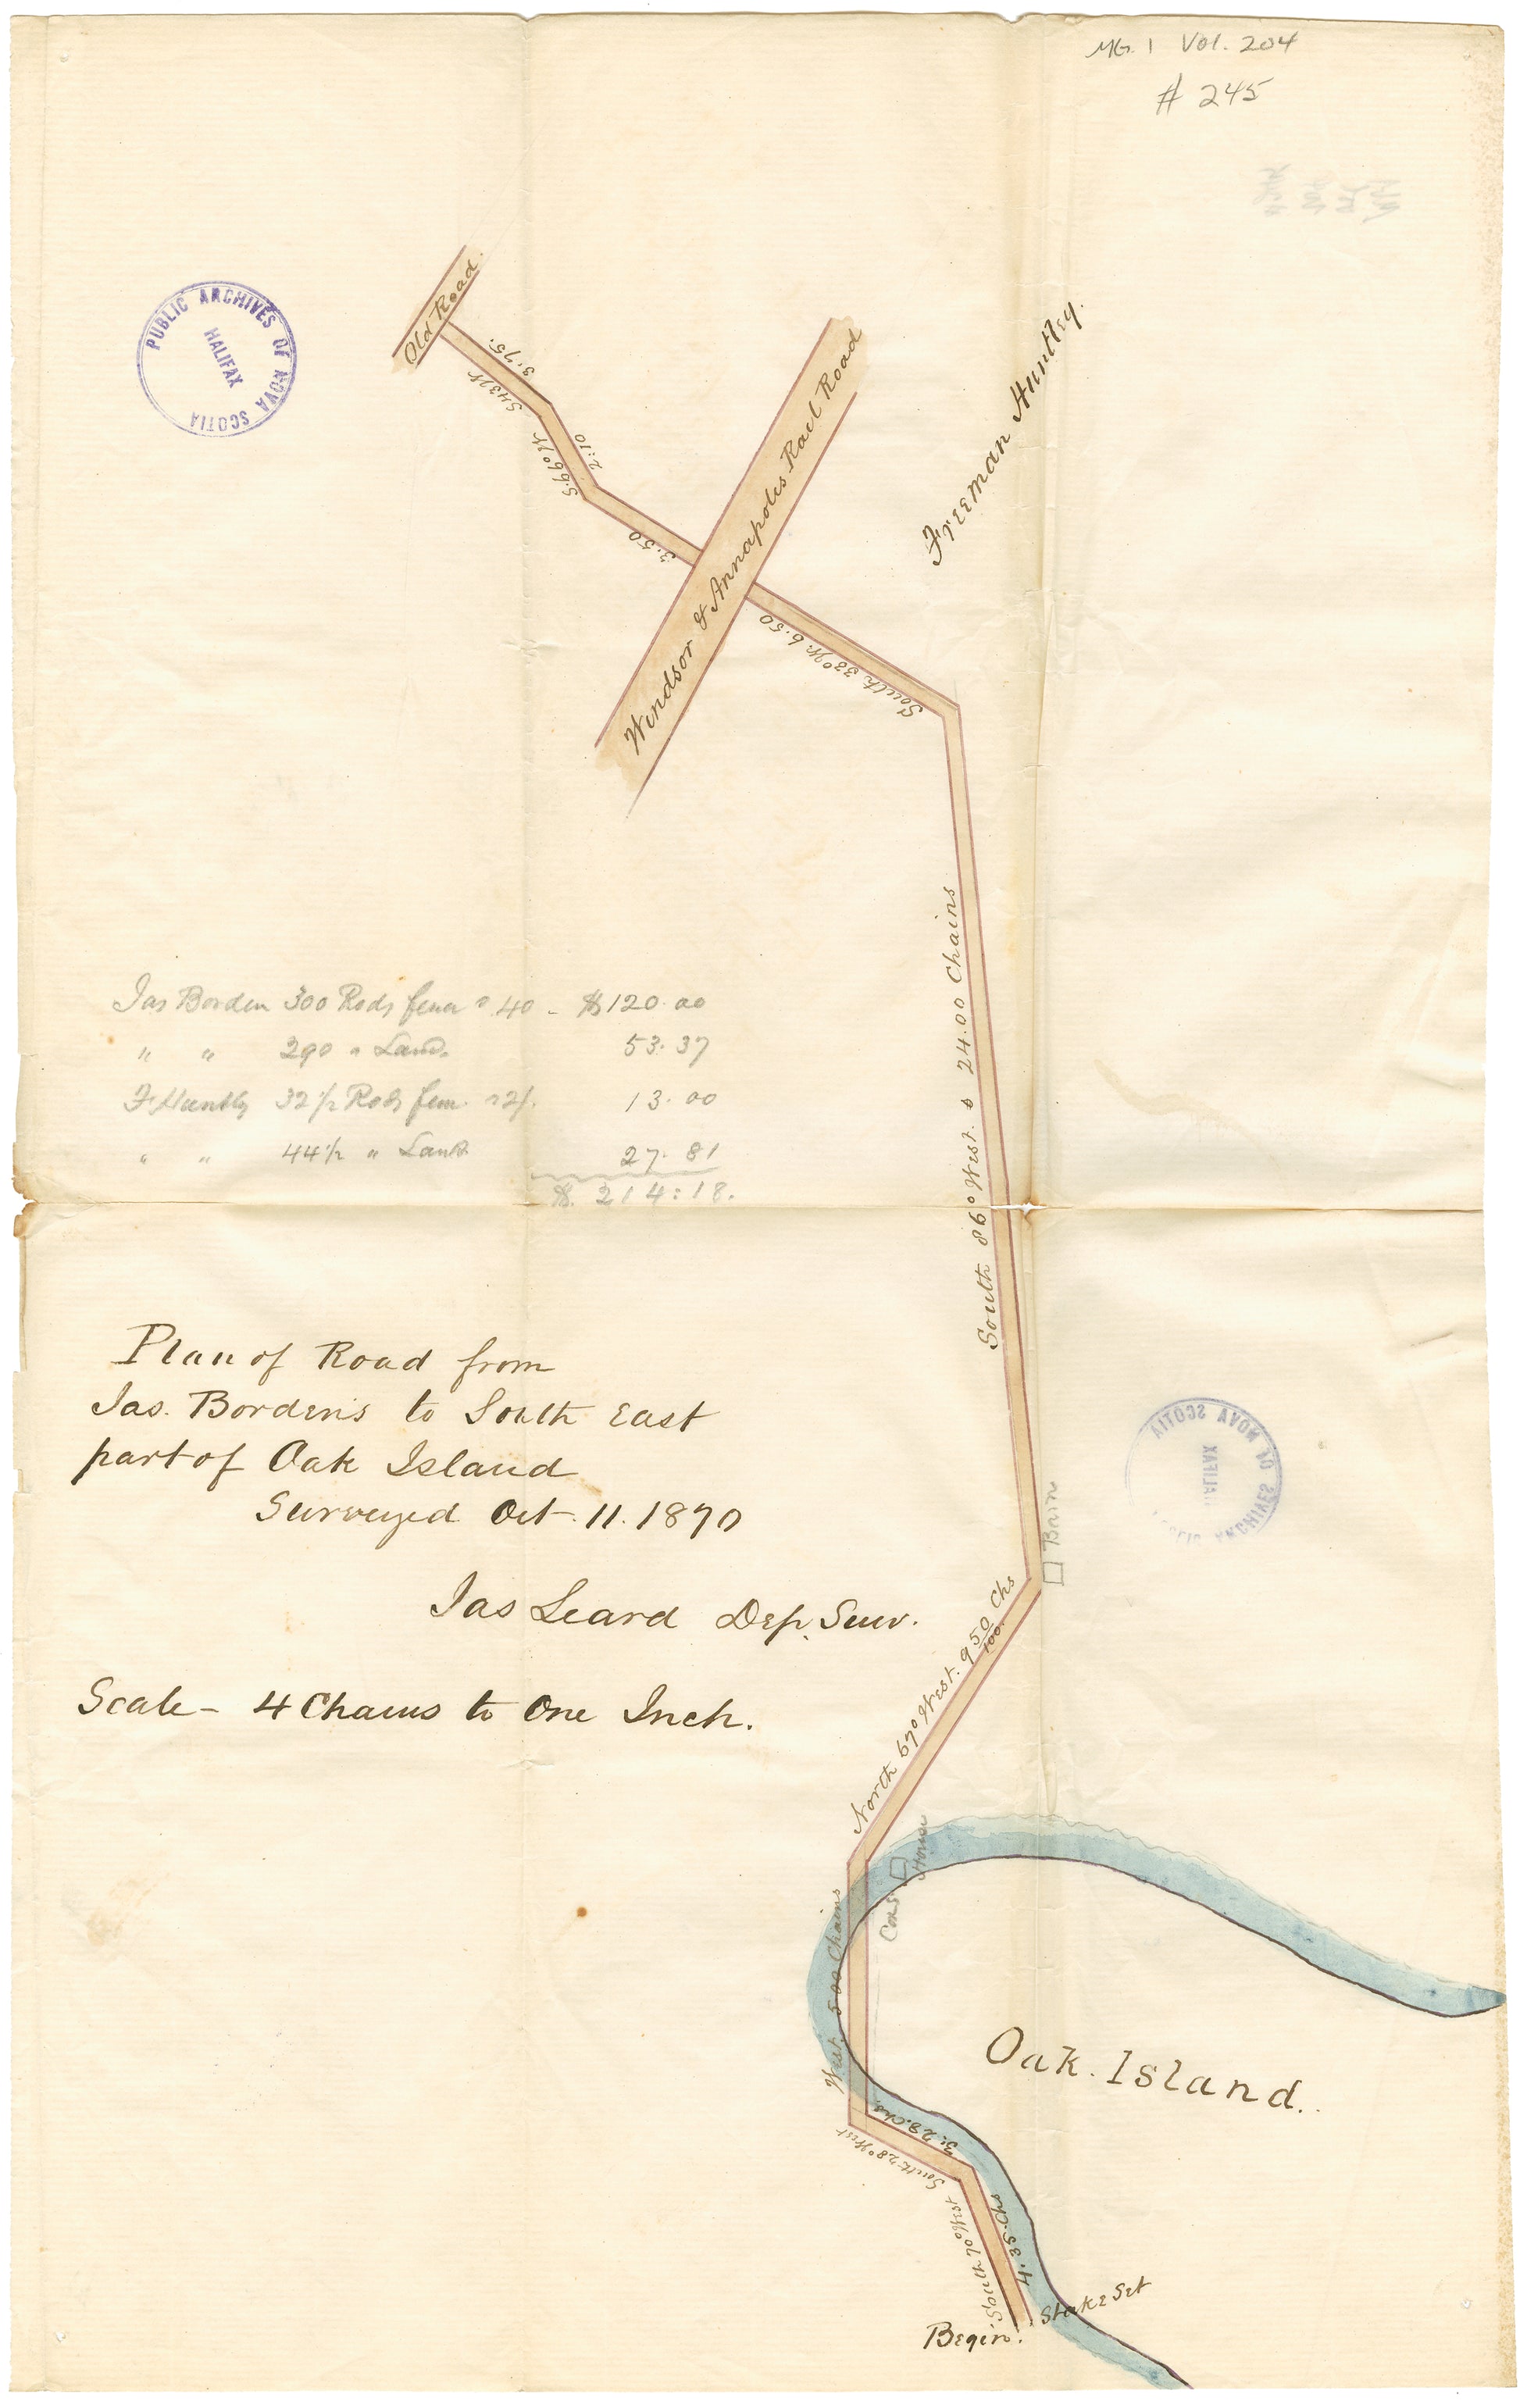 MG. 1 Vol. 204
# 245
PUBLIC ARCHIVES OF NOVA SCOTIA
HALIFAX
Old Road.
3.75.
S 43 W
2:10
S. 66° W.
3.50
Windsor & Annapolis Rail Road
Freeman Huntley.
South 33° W. 6.50
South 86° West. 24.00 Chains
Jas Borden 300 Rods fence @ 40 - $120.00
" " 290 " Land. 53.37
F Huntly 32 1/2 Rods fence 2/. 13.00
" " 44 1/2 " Land 27.81
$. 214:18.
Plan of Road from
Jas. Borden's to South East
part of Oak Island
Surveyed Oct. 11. 1870
Jas Leard Dep. Surv.
Scale - 4 Chains to One Inch.
PUBLIC ARCHIVES OF NOVA SCOTIA
HALIFAX
Barn
North 67° West. 9 50/100 Chs
House
West. 5.00 Chains
Oak. Island..
3:28. Chs.
South 28° West
South 70° West
4.35. Chs
Stake Set
Begin.